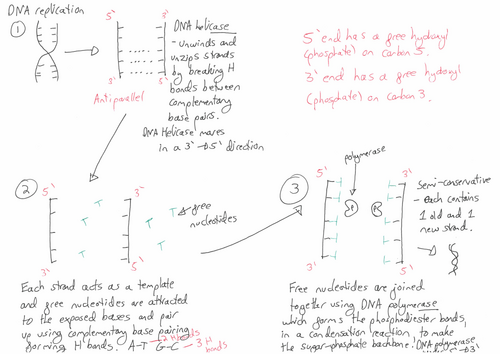 DNA replication
1
5' 3'
3' 5'
Antiparallel
DNA helicase
- unwinds and
unzips strands
by breaking H
bonds between
complementary
base pairs.
DNA Helicase moves
in a 3' → 5' direction
5' end has a free hydroxyl
(phosphate) on carbon 5.
3' end has a free hydoxyl
(phosphate) on carbon 3.
2
5' 3'
3' 5'
free
nucleotides
Each strand acts as a template
and free nucleotides are attracted
to the exposed bases and pair
up using complementary base pairing
forming H bonds. A-T 2 H bonds G-C 3 H bonds
3
polymerase
5' 3'
3' 5'
Semi-conservative
- each contains
1 old and 1
new strand.
Free nucleotides are joined
together using DNA polymerase
which forms the phosphodiester bonds,
in a condensation reaction, to make
the sugar-phosphate backbone. DNA polymerase